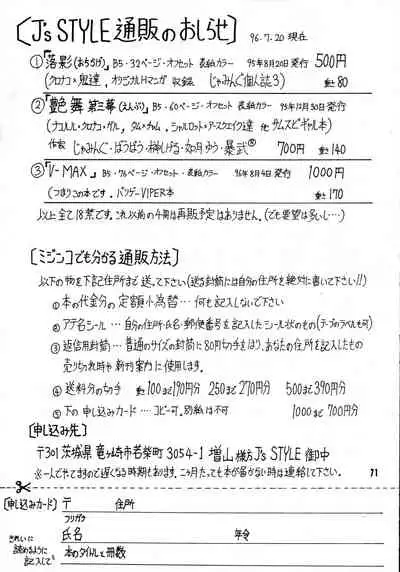 [J's STYLE 通販のおしらせ] 96.7.20 現在
①「落影(おちかげ)」B5・32ページ・オフセット 表紙カラー 95年8月20日発行 500円
(クロナ×鬼達、オリジナルHマンガ 収録 じゃみんぐ個人誌3) 重さ80
②「艶舞 第三幕(えんぶ)」B5・60ページ・オフセット 表紙カラー 95年12月30日発行
(ナコルル・クロナ・ガル、タム×チャム、シャルロット・アースクエイク達 他 サムスピギャル本)
作家 じゃみんぐ・ぱうぱう・榊しげる・如月ゆう・暴武® 700円 重さ140
③「V-MAX」B5・76ページ・オフセット・表紙カラー 96年8月4日発行 1000円
(つまりこの本です。バンザーVIPER本 重さ170
以上全て18禁です。これ以前の4冊は再販予定はありません。(でも要望は多いし…)
[ミジンコでも分かる通販方法]
以下の物を下記住所まで送って下さい(送る封筒には自分の住所を絶対に書いて下さい!!)
① 本の代金分の定額小為替… 何も記入しないで下さい
② アテ名シール … 自分の住所・氏名・郵便番号を記入したシール状のもの(テープのラベルも可)
③ 返信用封筒… 普通のサイズの封筒に80円切手をはり、あなたの住所を記入したもの
売り切れ時や新刊案内に使用します。
④ 送料分の切手 重さ100まで190円分 250まで270円分 500まで390円分
⑤ 下の申し込みカード … コピー可。別紙は不可 1000まで700円分
[申し込み先]
〒301 茨城県竜ヶ崎市若柴町3054-1 増山様方 J's STYLE 御中
※一人でやってますので遅くなる時期もあります。二ヶ月たっても本が届かない時は連絡して下さい。 71
[申し込みカード] 〒 住所
フリガナ
氏名 年令
きれいに
読めるように
記入して
本のタイトルと冊数